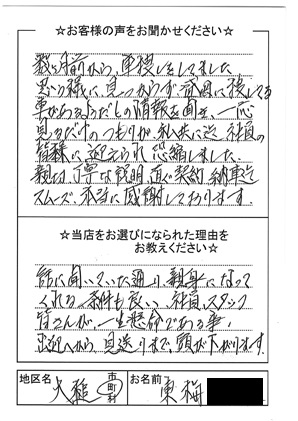 ☆お客様の声をお聞かせください☆
数ヶ月前から、車探しをしてました
思う様に、見つからず、斉園に残してる
車があるようだとの情報を聞き、一応
見るだけのつもりが、私共に迄、社員の
皆様に迎えられ、恐縮しました。
親切、丁寧な説明、直ぐ契約、納車迄
スムーズ、本当に感謝しております。
☆当店をお選びになられた理由を
お教えください☆
話に聞いていた通り、親身になって
くれる、条件も良い、社員、スタッフ
皆さんが、一生懸命である事。
出迎へから、見送りまで、頭が下がります。
地区名
大槌
市
町
村
お名前
東梅